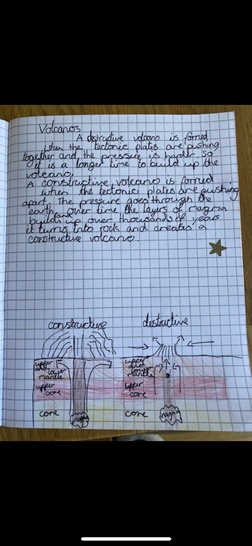 Volcanos
A distructive volcano is formed
when the tectonic plates are pushing
together and the pressure is harder so
it is a longer time to build up the
volcano.
A constructive volcano is formed
when the tectonic plates are pushing
apart. The pressure goes through the
earth over time the layers of magma
builds up over thousands of years
it turns into rock and creates a
constructive volcano.
constructive distructive
upper
mantle
upper
core
core
upper
mantle
upper
core
core
magma